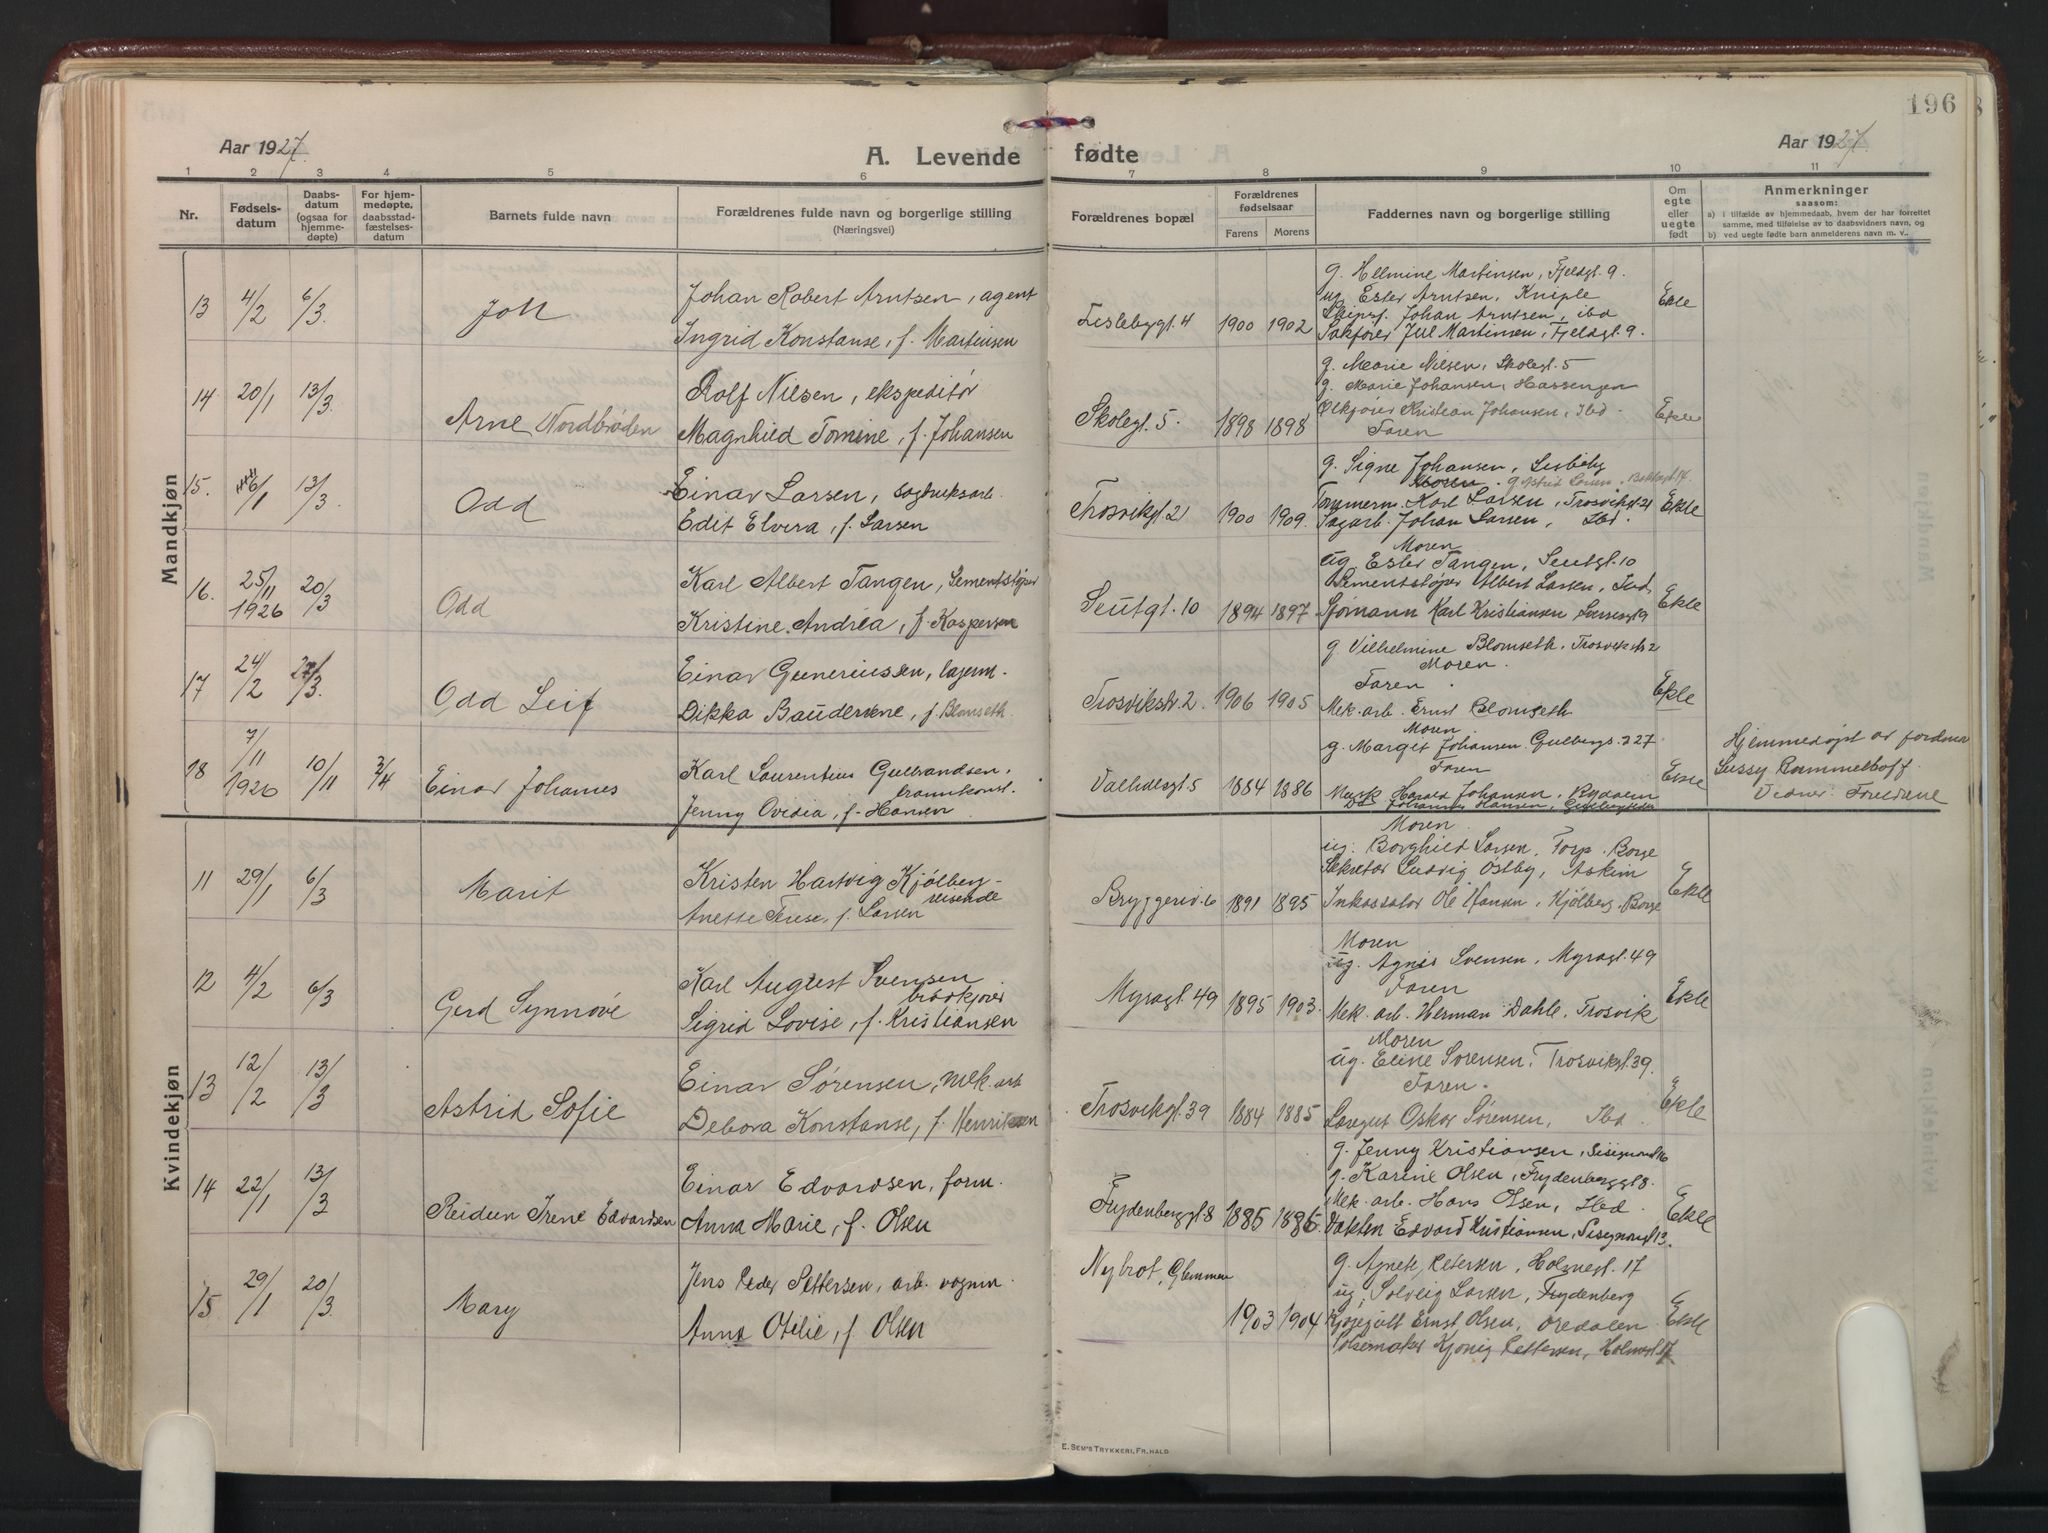 196
Aar 1927.
A. Levende fødte
Aar 1927.
1 2 3 4 5 6 7 8 9 10 11
Nr.
Fødsels-
datum
Daabs-
datum
(ogsaa for
hjemme-
døpte)
For hjem-
medøpte,
daabsstad-
fæstelses-
datum
Barnets fulde navn
Forældrenes fulde navn og borgerlige stilling
(Næringsvei)
Forældrenes bopæl
Forældrenes
fødselsaar
Farens Morens
Faddernes navn og borgerlige stilling
Om
egte
eller
uegte
født
Anmerkninger
saasom:
a) i tilfælde av hjemmedaab, hvem der har forrettet
samme, med tilføielse av to daabsvidners navn, og
b) ved uegte fødte barn anmelderens navn m. v.
Mandkjøn
13 4/2 6/3.
Johan Robert Arntsen, agent
Ingrid Konstanse, f. Martinsen
1900 1902
g. Helmine Martinsen, Fjeldgt. 9.
ug Ester Arntsen, Kniple
Johan Arntsen, ibd
Jul Martinsen, Fjeldgt. 9.
Ekte
14 20/1 13/3.
Arne Nordbrøden
Rolf Nilsen, ekspeditør
Magnhild Tomine, f. Johansen
Skolegt. 5.
1898 1898
g. Marie Nilsen, Skolegt. 5
g. Marie Johansen, Hassengen
Ølkjører Kristian Johansen, Ibd.
Faren
Ekte
15. 6/1 13/3.
Odd
Einar Larsen, sagbruksarb.
Edit Elvira, f. Larsen
Trosvikgt. 21
1900 1909.
g. Signe Johansen, Lisleby
Moren. g. Astrid Larsen, Bakkegt. 14.
Tømmerm. Karl Larsen, Trosvikgt 21
Sagarb. Johan Larsen, Ibd.
Ekte
16. 25/11 1926 20/3
Odd
Karl Albert Tangen, Sementstøper
Kristine Andréa, f. Kaspersen
Seutgt. 10
1894 1897
Moren
ug Ester Tangen, Seutgt. 10
Sementstøper Albert Larsen, Ibd.
Sjømann Karl Kristiansen
Ekte
17 24/2 27/3.
Odd Leif
Einar Guneriussen, lagerm.
Dikka Baudersene, f. Blomseth.
Trosvikstr. 2.
1906 1905
g. Vilhelmine Blomseth, Trosvikstr 2
Moren.
Faren.
Mek. arb. Ernst Blomseth
Ekte
18 7/11 1926 10/11 3/4
Einar Johannes
Karl Laurentius Gulbrandsen,
brannkonst.
Jenny Ovidia, f. Hansen
Valhalsgt 5
1884 1886
Moren.
g. Margit Johansen. Gulbergs. 27
Faren
Musk Harald Johansen, Rydalen
Do Johannes Hansen,
Ekte
Hjemmedøpt av jordmor
Sussy Rammelhoff.
Vidner: Foreldrene
Kvindekjøn
11 29/1 6/3
Marit
Kristen Hartvig Kjølberg-
reisende
Anette Terese, f. Larsen
Bryggeriv. 6
1891 1895
Moren.
ug. Borghild Larsen, Torp. Borge
Sekretær Ludvig Østby, Askim
Inkassator Ole Hansen, Kjølberg. Borge
Ekte
12 4/2 6/3
Gerd Synnøve
Karl August Svensen
brødkjører
Sigrid Lovise, f. Kristiansen
Myragt. 49
1895 1903.
Moren
ug. Agnes Svensen, Myragt. 49
Faren
Mek. arb. Herman Dahle, Trosvik
Ekte
13 12/2 13/3
Astrid Sofie
Einar Sørensen, mek. arb
Debora Konstanse, f. Henriksen
Trosvikgt. 39
1884 1885
Moren
ug. Eline Sørensen, Trosvikgt. 39.
Faren.
Laregut Oskar Sørensen, Ibd.
Ekte
14 22/1 13/3
Reidun Irene Edvardsen
Einar Edvardsen, form.
Anna Marie, f. Olsen
Frydenberggt 8
1885 1886.
g. Jenny Kristiansen,
g. Karine Olsen, Frydenberggt 8.
Mek. arb. Hans Olsen, Ibd.
Edvard Kristiansen,
Ekte
15 29/1 20/3.
Mary
Jens Peder Pettersen, arb. vognm.
Anna Otilie, f. Olsen
Nybrot, Glemmen
1903 1904
g. Agnete Petersen, Holmegt. 17
ug. Solveig Larsen, Frydenberg
Ernst Olsen, Oredalen
Pølsemaker Pettersen, Holmegt. 17
Ekte
E. SEM'S TRYKKERI, FR.HALD